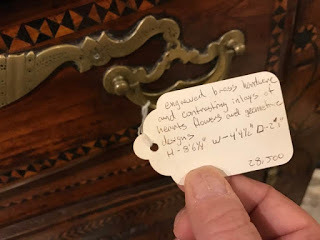 engraved brass hardware
and contrasting inlays of
hearts flowers and geometric
designs
H - 8'6¼" W - 4'4½" D - 2'1"
28,500